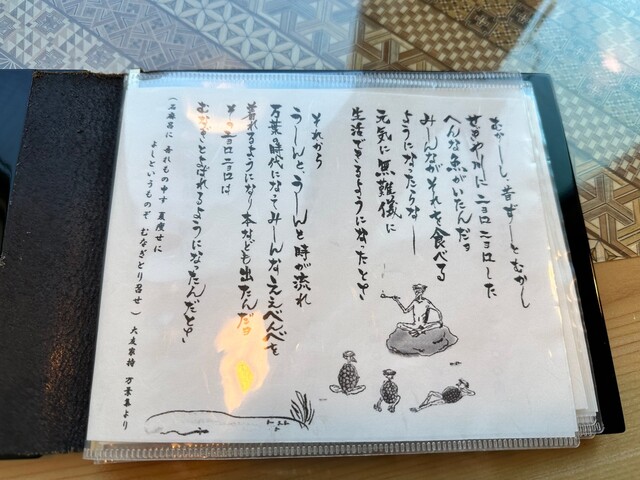 むかーし、昔ずーとむかし
せきや川にニョロニョロした
へんな魚がいたんだョ
みーんながそれを食べる
ようになったらなー
元気に無難儀に
生活できるようになったとさ
それから
うーんとうーんと時が流れ
万葉時代になってみーんなええべべを
着れるようになり本なども出たんだョ
そのニョロニョロは
むなぎとよばれるようになったんだとさ
(石麻呂に 吾れもの申す 夏痩せに
よしというものぞ むなぎとり召せ) 大友家持 万葉集より